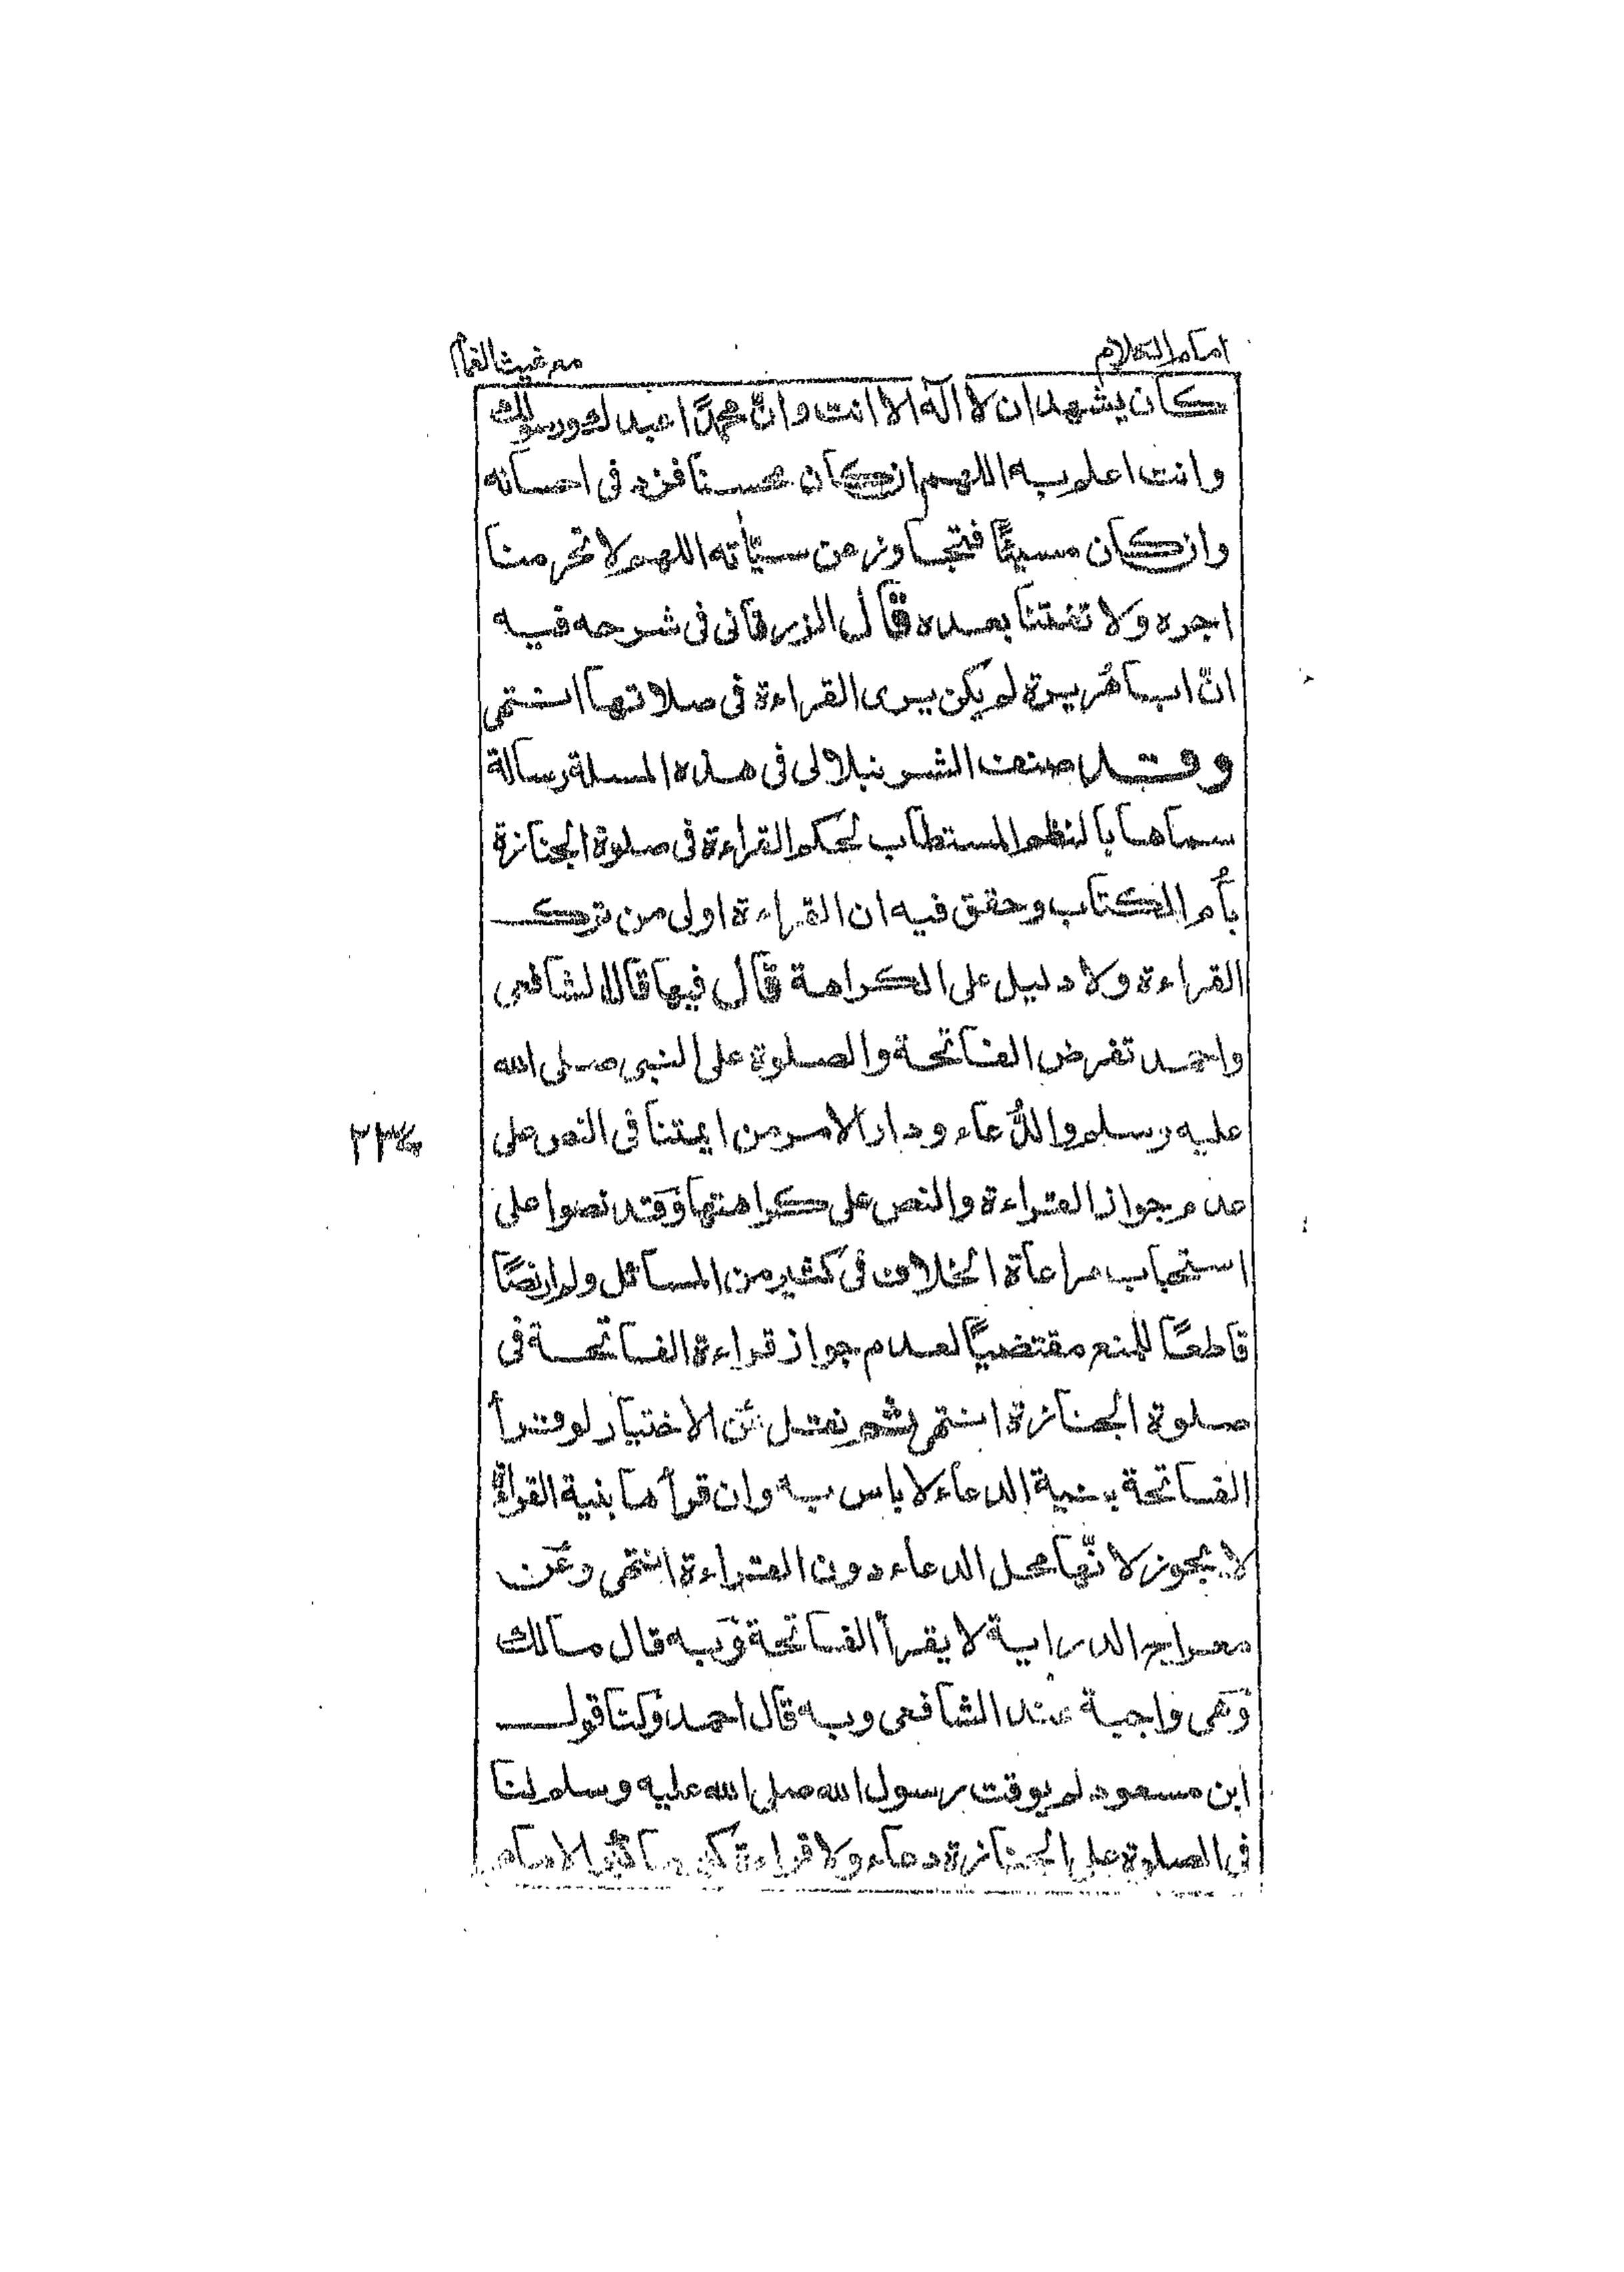 امام الكلام
مع غيث الغمام
كان يشهد ان لا اله الا انت وانّ محمدًا عبدك ورسولك
وانت اعلم به اللهم ان كان محسنا فزد فى احسانه
وان كان مسيئًا فتجاوز عن سيّأته اللهم لا تحرمنا
اجره ولا تفتنا بعده قال الزرقانى فى شرحه فيه
انّ ابا هُريرة لم يكن يرى القراءة فى صلاتها انتهى
وقد صنف الشرنبلالى فى هذه المسلة رسالة
سماها بالنظم المستطاب لحكم القراءة فى صلوة الجنازة
بأم الكتاب وحقق فيه ان القراءة اولى من ترك
القراءة ولا دليل على الكراهة قال فيها قال الشافعى
واحمد تفرض الفاتحة والصلوة على النبى صلى الله
عليه وسلم والدُّعاء ودار الامر من ايمتنا فى النص على
عدم جواز القراءة والنص على كراهتها وقد نصوا على
استحباب مراعاة الخلاف فى كثير من المسائل ولم ار نصًا
قاطعًا للمنع مقتضيًا لعدم جواز قراءة الفاتحة فى
صلوة الجنازة انتهى ثم نقل عن الاختيار لو قرأ
الفاتحة بنية الدعاء لا باس به وان قرأها بنية القراءة
لا يجوز لانّها محل الدعاء دون القراءة انتهى وعن
معراج الدراية لا يقرأ الفاتحة وبه قال مالك
وهى واجبة عند الشافعى وبه قال احمد ولنا قول
ابن مسعود لم يوقت رسول الله صلى الله عليه وسلم لنا
فى الصلوة على الجنازة دعاء ولا قراءة كبر ما كبر الامام
٢٣٤